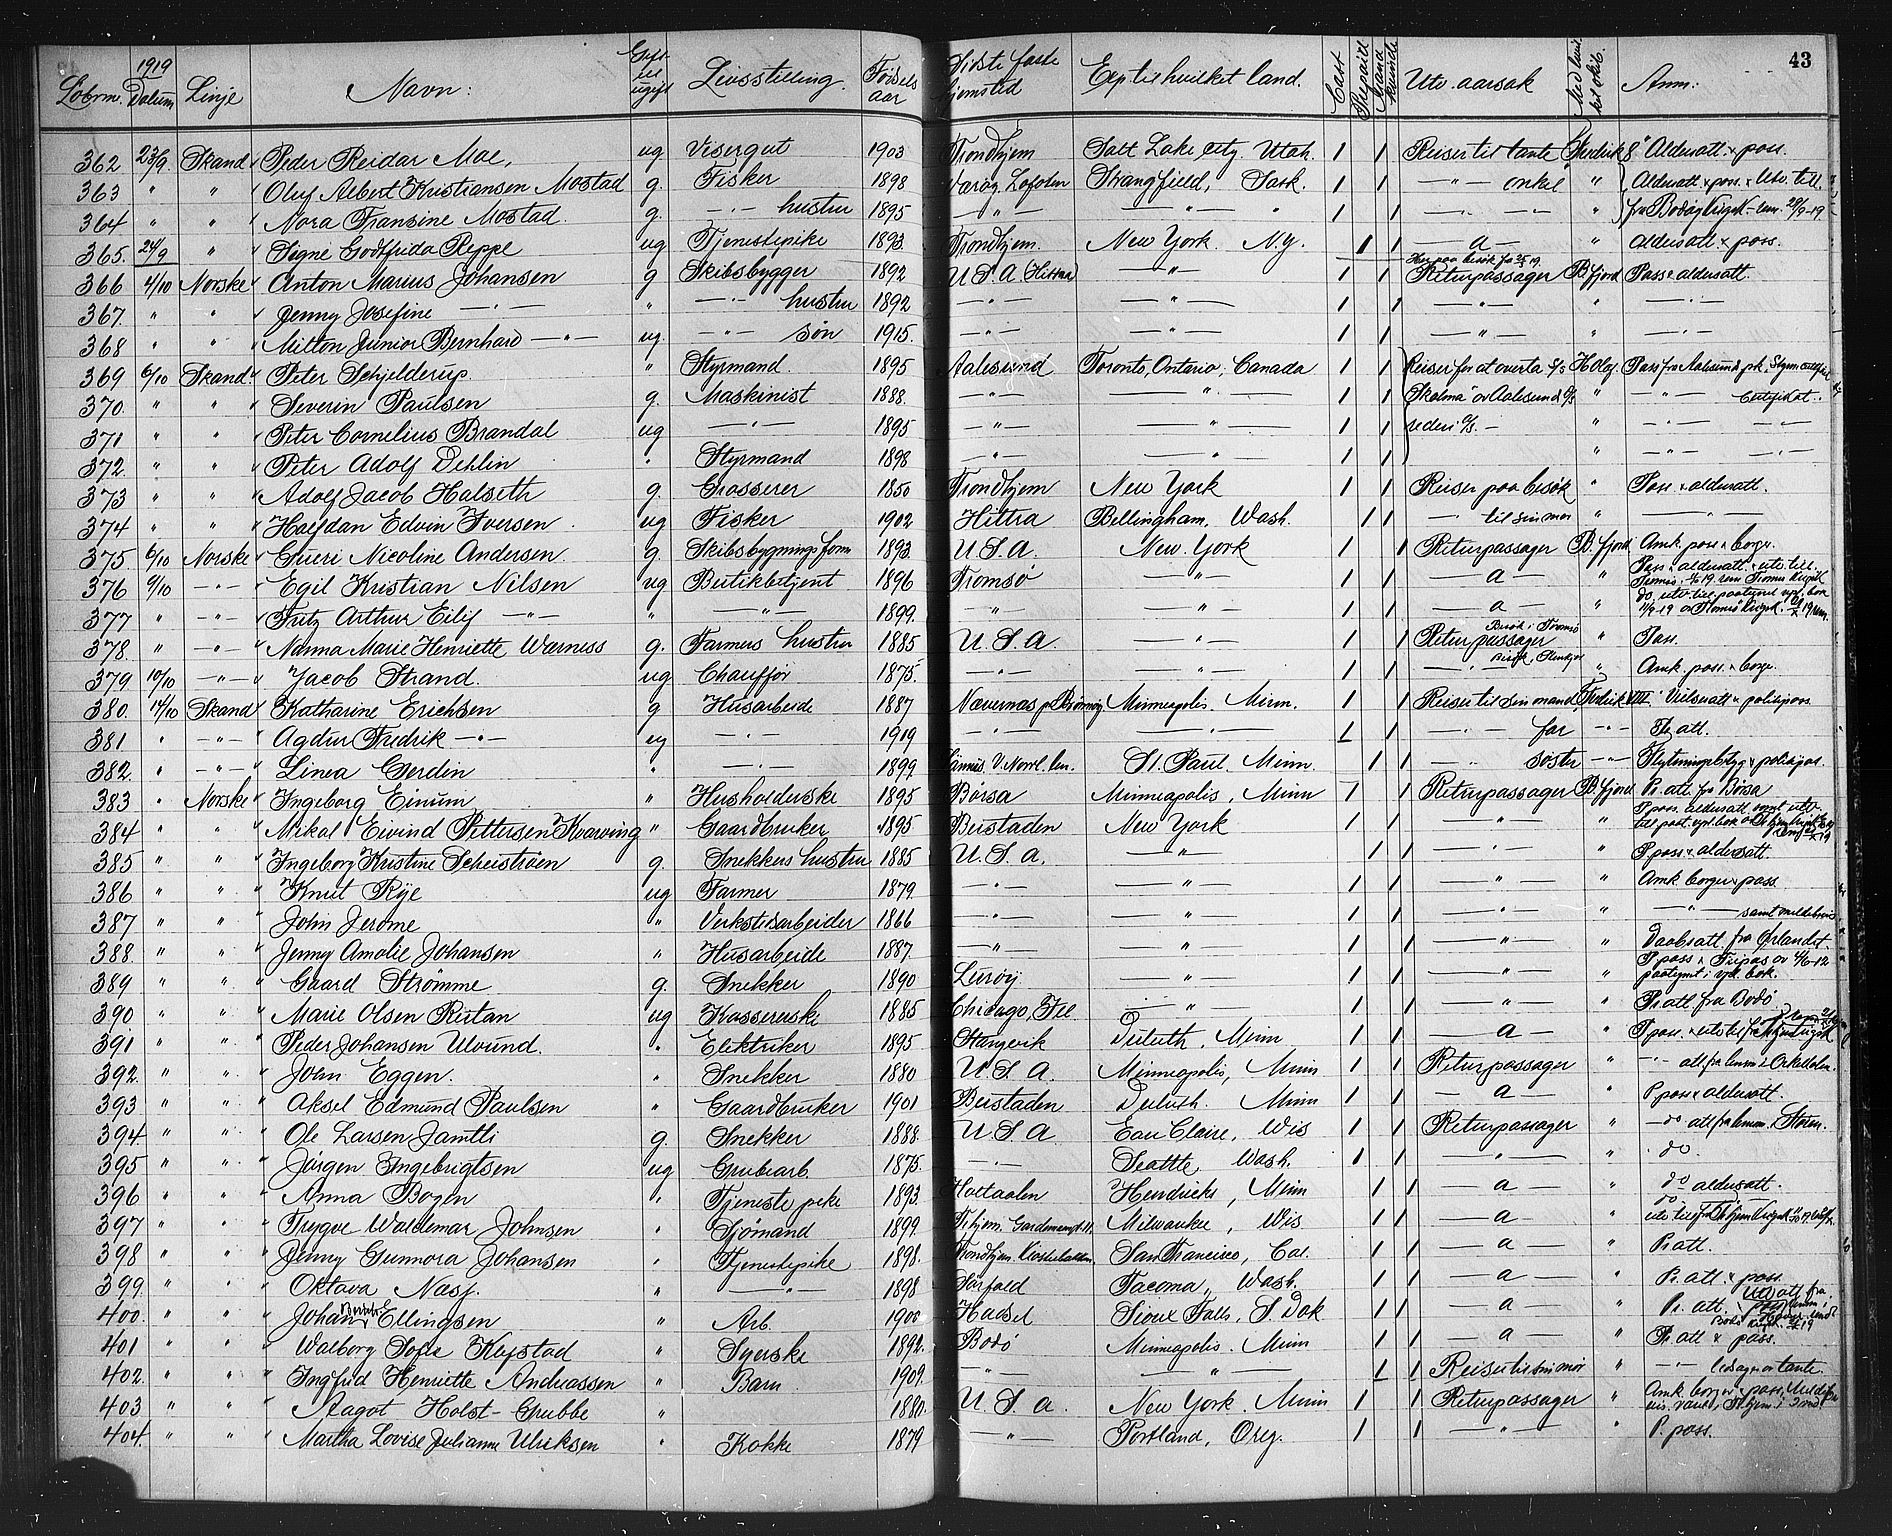 43
1919
Lobnrm. Datum Linje Navn: Gift eller ugift Livsstilling. Fødsels aar Sidste faste hjemsted Exp. til hvilket land. Cash Prepaid Utv. aarsak Anm:
362 23/9. Skand " Peder Reidar Moe, ug Visergut 1903 Trondhjem Salt Lake city. Utah. 1 1 Reiser til tante Fredrik 8" Aldersatt. & pass.
363 " " " Oluf Albert Kristiansen Mostad g. Fisker 1898 Værøy Lofoten Strangfield, Sask. 1 1 — " — onkel " Aldersatt. & pass. & Utv. till.
364 " " " Nora Fransine Mostad. g. — " — hustru 1895 — " — — " — " 1 1 — " — " fra Bodø 29/9-19
365. 24/9 " " Signe Godtfrida Reppe ug Tjenestepike 1893. Trondhjem. New York. N.y. 1 1 — a — " Aldersatt & pass.
366 4/10 Norske " Anton Marius Johansen g Skibsbygger 1892 U.S.A (Hittra) — " — 1 1 Returpassager B.fjord Pass & aldersatt.
367. " " " Jenny Josefine — " — " — " — hustru 1892 — " — — " — 1 1 — " — " — " —
368 " " " Milton Junior Bernhard — " — ug. — " — søn 1915. — " — — " — 1 1 — " — " — " —
369 6/10 Skand. " Peter Schjelderup. " Styrmand. 1895 Aalesund Toronto, Ontario, Canada 1 1 Reiser for at overta S/S H.Olav. Pass fra Aalesund
370. " " " Severin Paulsen g. Maskinist 1888. — " — — " — 1 1 "Skalma" av Aalesund " — " — Certifikat.
371 " " " Peter Cornelius Brandal ug — " — 1895 — " — — " — 1 1 " — " — — " —
372. " " " Peter Adolf Dehlin " Styrmand 1898 — " — — " — 1 1 " — " — — " —
373 " " " Adolf Jacob Halseth g. Grosserer 1850 Trondhjem New York 1 1 Reiser paa besøk " Pass. & aldersatt.
374 " " " Halfdan Edvin Iversen. ug Fisker 1902 Hittra Bellingham, Wash. 1 1 — " til sin mor " — " —
375. 6/10 Norske " Guri Nicoline Andersen. g. Skibsbygnings form 1893. U.S.A. New York 1 1 Returpassager B.fjord Amk. pass & borger.
376 9/10 — " — " Egil Kristian Nilsen ug Butikbetjent 1896 Tromsø — " — 1 1 — a — " Pass & aldersatt. & utv. till.
377 " — " — " Fritz Arthur Eilif — " — " — " — 1899. — " — — " — 1 1 — a — "
378. " — " — " Nanna Marie Henriette Værness g. Farmers hustru 1885 U.S.A. — " — 1 1 Returpassager Besøk i Tromsø " Pass.
379. 10/10 — " — " Jacob Strand. ug Chauffør 1875. — " — — " — 1 1 — " — " Amk. pass. & borge.
380. 14/10 Skand " Katharine Erichsen g Husarbeide 1887 Minneapolis. Minn. 1 1 Reiser til sin mand Fredrik VIII" Vielsesatt & politipass.
381 " — " — " Agdur Fredrik — " — ug — " — 1919 — " — — " — 1 1 — " — far — " — Fr. att.
382. " — " — " Linea Gerdin " — " — 1899. St. Paul. Minn. 1 1 — " søster — " — Flytningsbetyg & politipas.
383 " Norske " Ingeborg Einum " Husholderske 1895 Børsa Minneapolis, Minn 1 1 Returpassager B.fjord Pr. att. fra Børsa
384 " " " Mikal Eivind Pettersen Kvarving " Gaardbruker 1895 Beistaden New York 1 1 — " — "
385 " " " Ingeborg Kristine Scheistrøen g. Snekkers hustru 1885 U.S.A. — " — 1 1 — " — " P.pass & aldersatt.
386 " " " Knut Rye ug Farmer 1879. — " — — " — 1 1 — " — " Amk. borger & pass.
387 " " " John Jerome " Verkstedarbeider 1866 — " — — " — 1 1 — " — " — " —
388. " " " Jenny Amalie Johansen " Husarbeide 1887. — " — — " — 1 1 — " — " Daabsatt. fra Ørlandet.
389 " " " Gaard Strømme g. Snekker 1890 Lurøy — " — 1 1 — " — " P.pass &
390 " " " Marie Olsen Ristan ug Kassererske 1885 Chicago, Ill — " — 1 1 — " — " Pr.att. fra Bodø
391 " " " Peder Johansen Ulvund. " Elektriker 1895 Stangvik Duluth, Minn 1 1 — a — " P.pass.
392. " " " Joan Eggen. " Snekker 1880 U.S.A. Minneapolis, Minn 1 1 Returpassager " — " — att. fra lensm. i Orkdalen.
393 " " " Aksel Edmund Paulsen " Gaardbruker 1901 Beistaden Duluth. Minn 1 1 — a — " P.pass & aldersatt.
394 " " " Ole Larsen Jamtli g. Snekker 1888. U.S.A Eau Claire, Wis 1 1 Returpassager " — do att fra lensm.
395 " " " Jørgen Ingebrigtsen ug Grubearb. 1875. — " — Seattle Wash. 1 1 — " — " do.
396 " " " Anna Bogen " Tjeneste pike 1893. Holtaalen Hendricks, Minn 1 1 — a — " do aldersatt.
397 " " " Trygve Waldemar Johnsen " Sjømand 1899. Tr.hjem. Milwaukee, Wis 1 1 — a — " do
398 " " " Jenny Gunnora Johansen " Tjenestepike 1898. Trondhjem San Francisco, Cal. 1 1 — a — " Pr.att.
399. " " " Oktava Næss. " — " — 1898 Sørfold Tacoma, Wash. 1 1 — a — " Pr. att. & pass.
400. " " " Johan Ellingsen " Arb. 1900 Hadsel Sioux Falls, S. Dak 1 1 — a — " Pr. att.
401 " " " Walborg Sofie Kjystad " Syerske 1892. Bodø Minneapolis. Minn 1 1 — a — " Pr. att & pass.
402. " " " Ingfrid Henriette Andreassen " Barn 1909. — " — — " — 1 1 Reiser til sin mor " — " — ledsager av tante.
403 " " " Aagot Holst-Grubbe " 1880. U.S.A. New York. Minn 1 1 Returpassager " Amk. borger & pass,
404. " " " Martha Lovise Julianne Ulriksen " Kokke 1879 — " — Portland, Oreg. 1 1 — " — " P. pass.